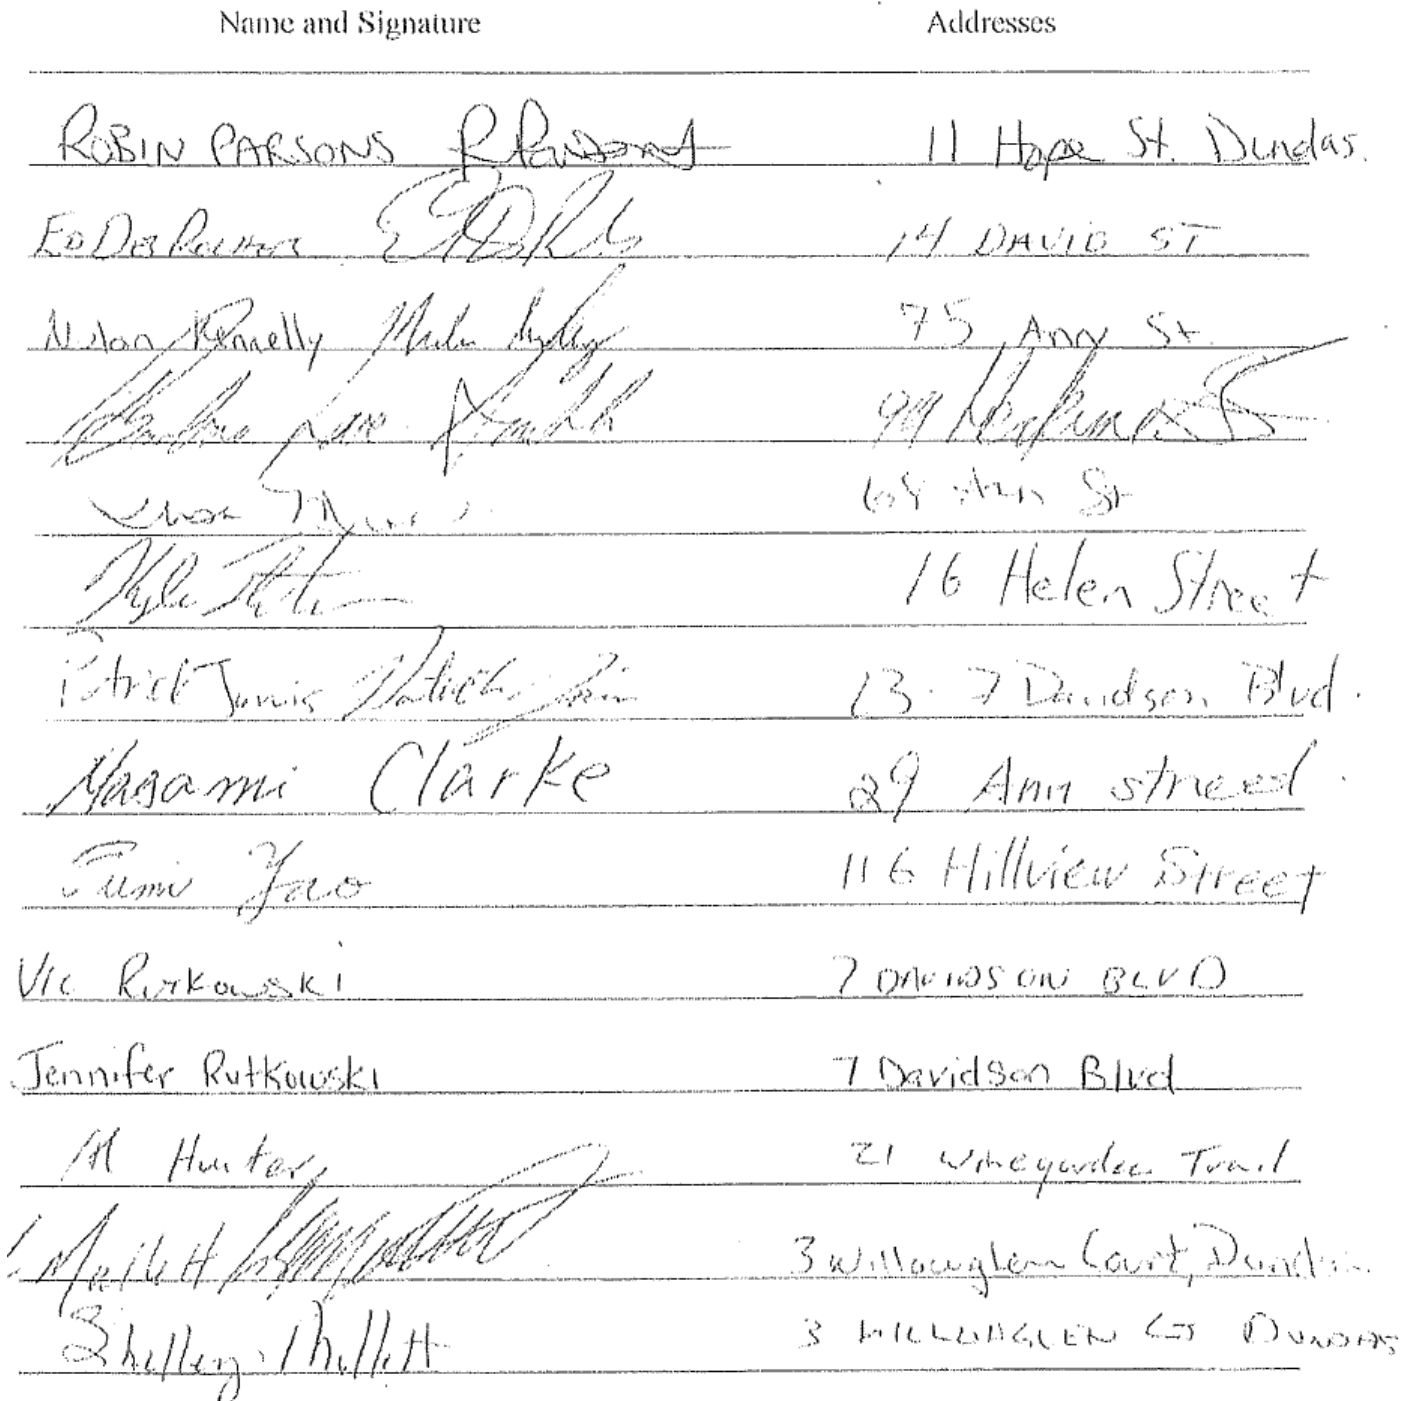 Name and Signature Addresses
ROBIN PARSONS R Parsons 11 Hope St. Dundas.
ED 14 DAVID ST
Nolan 75 Ann St.
99 St
St
Kyle 16 Helen Street
Patrick Jarvis Patrick Jarvis 13-7 Davidson Blvd.
Masami Clarke 29 Ann streed
Fumi Yao 116 Hillview Street
Vic Rutkowski 7 DAVIDSON BLVD
Jennifer Rutkowski 7 Davidson Blvd
M Hunter 21 Winegarden Trail
Mallett 3 Willowglen Court, Dundas
Shelley Mallett 3 WILLOWGLEN CT DUNDAS